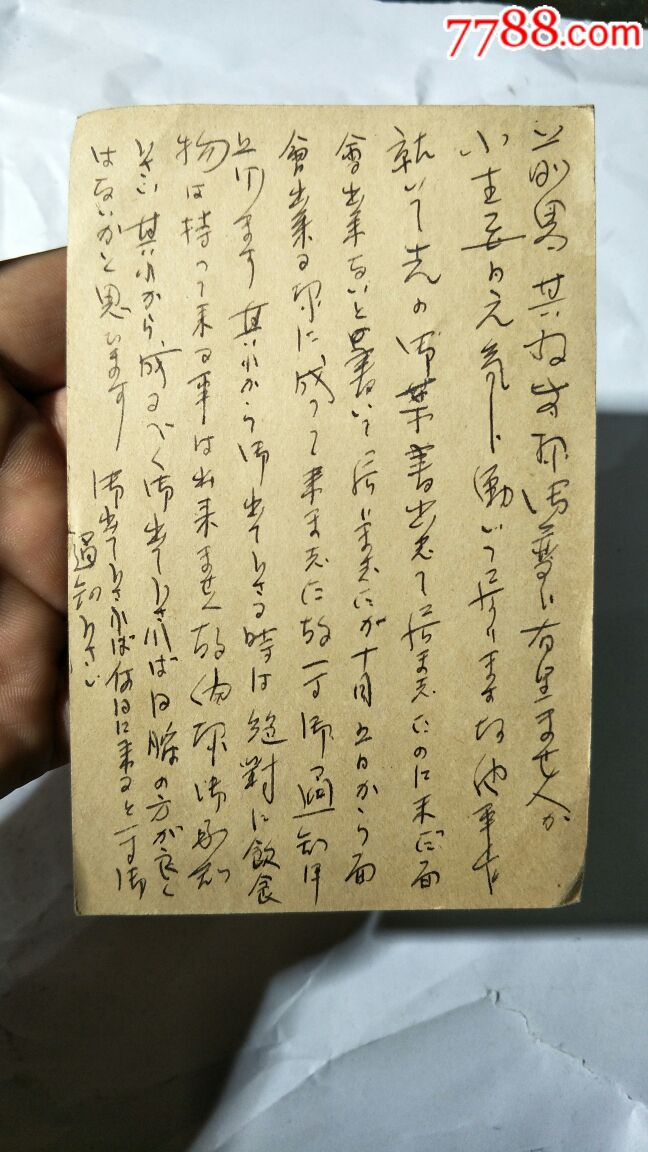 7788.com
前略 其の后 御変り有りませんか
小生 毎日元気に働いて居ります 他事
就いて 先の御葉書出して居ましたのに未だ面
會出来ないと書いて居いましたが十月五日から面
會出来る様に成って来ました故一寸御通知申
上げます 其れから御出で下さる時は絶対に飲食
物は持って来る事は出来ません故 御承知
下さい 其れから成るべく御出で下されば日曜の方が良く
はないかと思います 御出で下されば何日に来ると一寸御
通知下さい